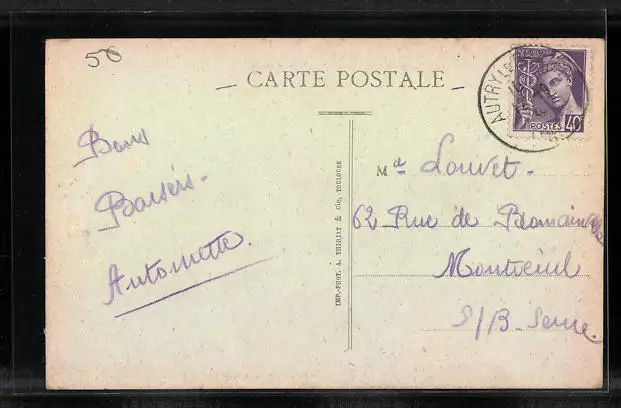 50
CARTE POSTALE
AUTRY
POSTES 40
Bons
Baisers.
Antoinette.
IMP.-PHOT. A. THIRIAT & Cie, TOULOUSE
M Louvet.
62 Rue de Romainville
Montreuil
S/B-Seine.